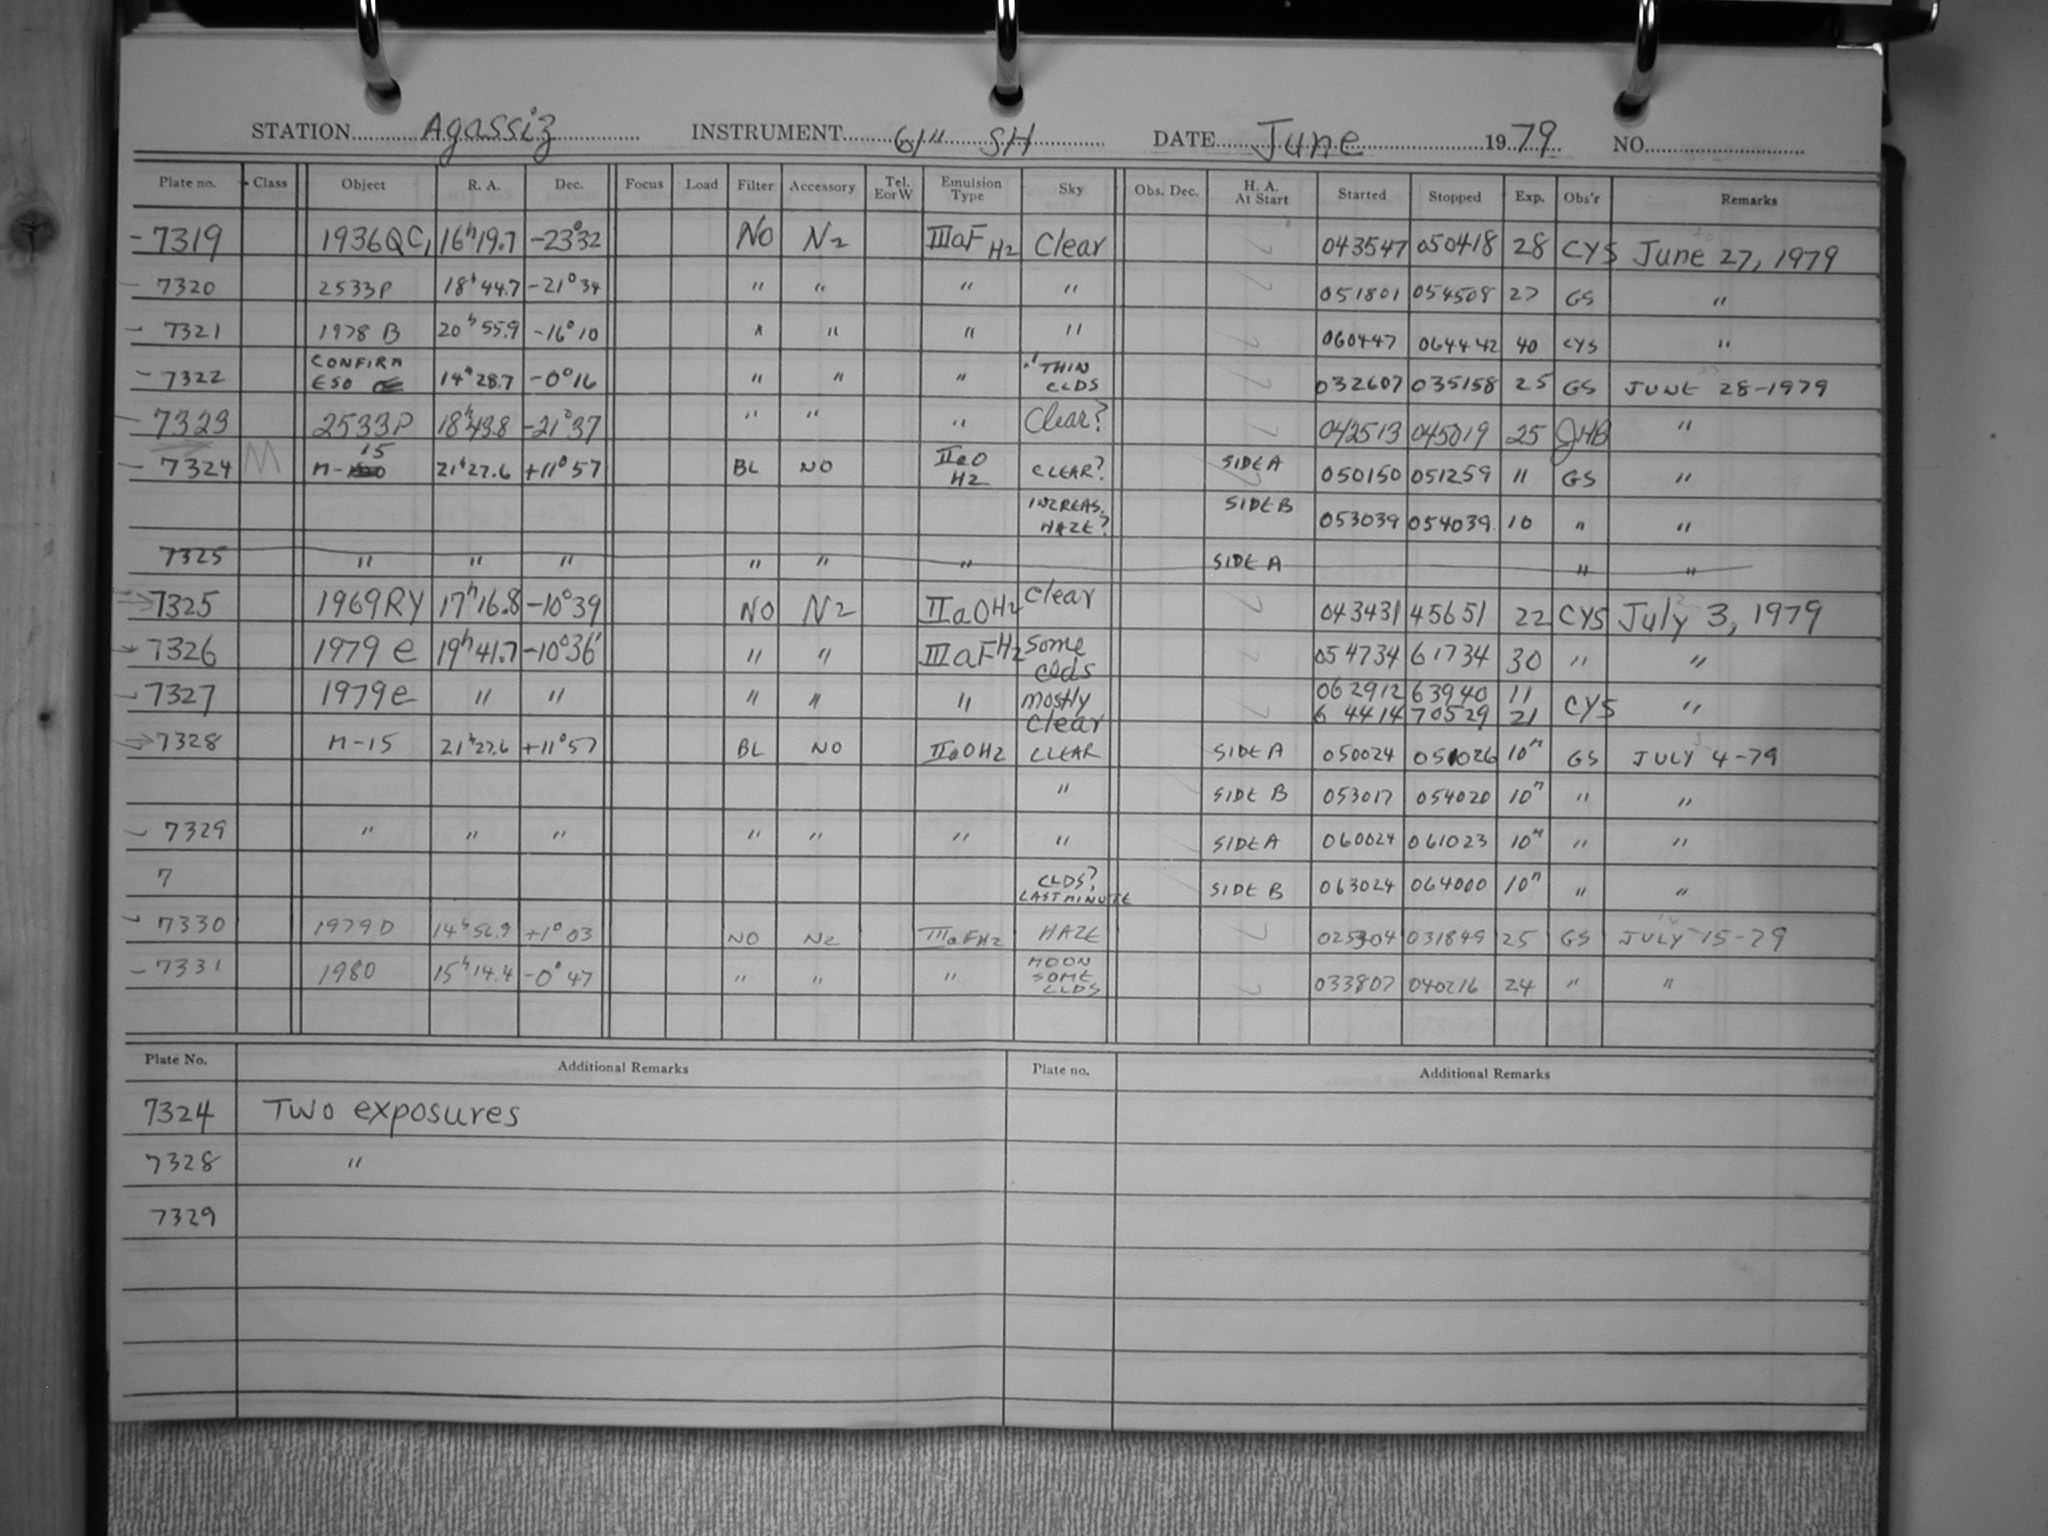 STATION Agassiz INSTRUMENT 61" SH DATE June 1979 NO.
Plate no. Class Object R. A. Dec. Focus Load Filter Accessory Tel. E or W Emulsion Type Sky Obs. Dec. H. A. At Start Started Stopped Exp. Obs'r Remarks
7319 1936QC, 16h19.7 -23°32 NO N2 IIIaF H2 Clear 043547 050418 28 CYS June 27, 1979
7320 2533P 18h44.7 -21°34 " " " " 051801 054508 27 GS "
7321 1978 B 20h55.9 -16°10 " " " " 060447 064442 40 CYS "
7322 CONFIRM ESO 14h28.7 -0°16 " " " " THIN CLDS 032607 035158 25 GS JUNE 28-1979
7323 2533P 18h43.8 -21°37 " " " Clear? 042513 045019 25 JHB "
7324 M M-15 21h27.6 +11°57 BL NO IIaO H2 CLEAR? SIDE A 050150 051259 11 GS "
INCREAS. HAZE? SIDE B 053039 054039 10 " "
7325 " " " " " " SIDE A " "
7325 1969RY 17h16.8 -10°39 NO N2 IIaOH2 clear 043431 45651 22 CYS July 3, 1979
7326 1979 e 19h41.7 -10°36' " " IIIaFH2 some clds 054734 61734 30 " "
7327 1979e " " " " " mostly clear 062912 63940 11 CYS "
6 4414 70529 21
7328 M-15 21h27.6 +11°57 BL NO IIaOH2 CLEAR SIDE A 050024 051026 10m GS JULY 4-79
" SIDE B 053017 054020 10m " "
7329 " " " " " " " SIDE A 060024 061023 10m " "
7 CLDS? LAST MINUTE SIDE B 063024 064000 10m " "
7330 1979D 14h56.9 +1°03 NO N2 IIIaFH2 HAZE 025304 031849 25 GS JULY 15-79
7331 1980 15h14.4 -0°47 " " " MOON SOME CLDS 033807 040216 24 " "
Plate No. Additional Remarks Plate no. Additional Remarks
7324 Two exposures
7328 "
7329